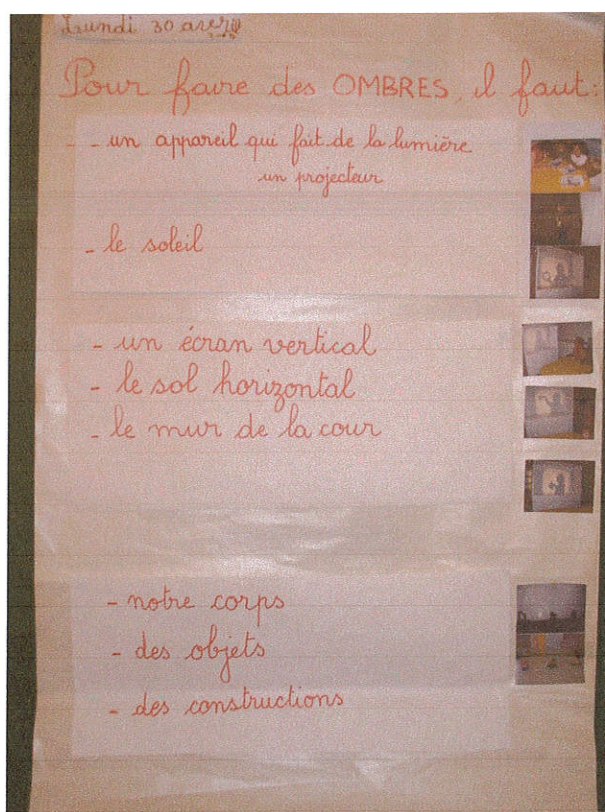 Lundi 30 avril
Pour faire des OMBRES, il faut:
- - un appareil qui fait de la lumière
un projecteur
- le soleil
- un écran vertical
- le sol horizontal
- le mur de la cour
- notre corps
- des objets
- des constructions